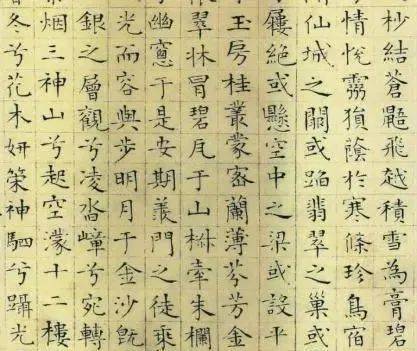 杪結蒼飛越積雪為膏碧
情悅霧狖蔭於寒條珍鳥宿
仙城之闕或蹈翡翠之巢或
屨絕或懸空中之梁或設平
玉房桂叢蒙密蘭薄芬芳金
翠牀冒碧瓦于山椒牽朱欄
幽窻于是安期羨門之徒乘
光而容與步明月于金沙既
銀之層觀兮凌沓嶂兮宛轉
烟三神山兮起空濛十二樓
冬兮花木妍策神駟兮躡光